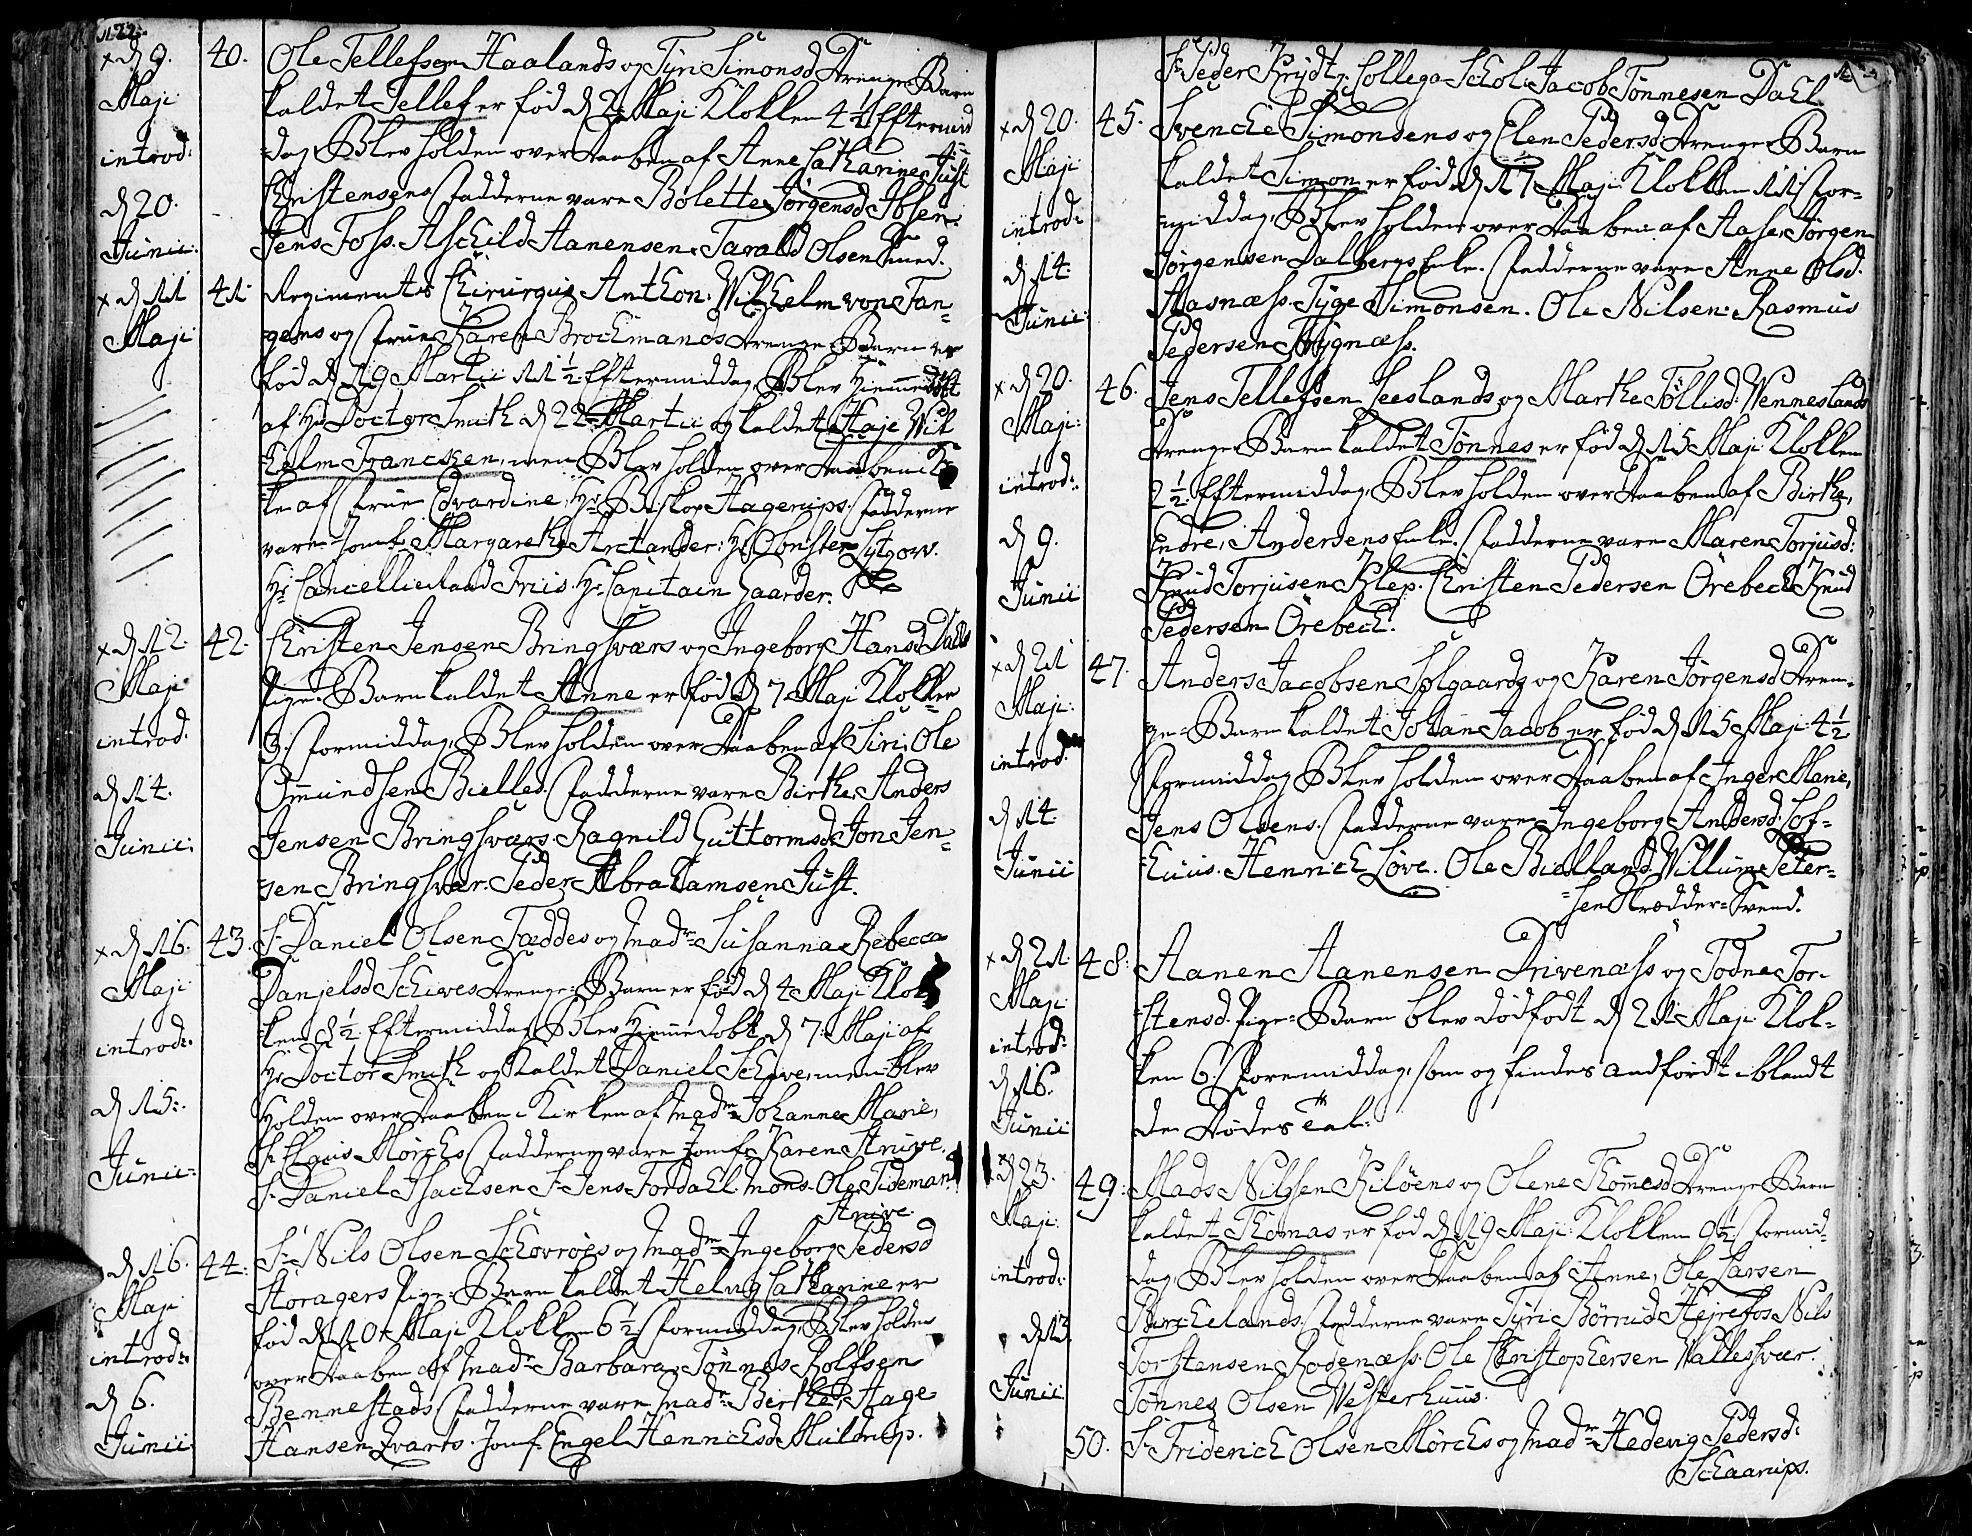 122.
x d 9. Maji introd: d 20. Junii:
40. Ole Tellefsen Haalands og Siri Simonsd Drenge-Barn
kaldet Tellef er fød d 2 Maji Klokken 4½ Eftermid
=dag, Blev holden over Daaben af Anne Catharine Just
Christensens Fadderne vare Bolette Jørgensd Ibsen.
Jens Foss. Aschild Aanensen. Tarald Olsen Smed.
x d 11 Maji
41. Regiments Chirurgus Anthon: Wilhelm von Tan=
gens og Frue Karen Brochmands Drenge-Barn er
fød d 19 Martii 11½ Eftermiddag, Blev Hiemmedøbt
af Hr Doctor Smith d 22 Martii og kaldet Haje Wil
helm Francken, men Blev holden over Daaben i Kir
ken af Frue Edvardine, Hr Biskop Hagerups. Fadderne
vare Jomfr Margarethe Arctander: Hr Obrister Lytzow.
Hr Cancellieraad Friis. Hr Capitain Gaarder.
x d 12. Maji introd. d 14. Junii:
42. Christen Jensen Bringsværs og Ingeborg Hansd Dahls
Pige-Barn kaldet Anne er fød d 7 Maji Klokken
3. Formiddag, Blev holden over Daaben af Siri, Ole
Omundsen Bielles. Fadderne vare Birthe, Anders
Jensen Bringsværs. Ragnild Guttormsd. Jon Jen=
sen Bringsvær. Peder Abrahamsen Just.
x d 16. Maji introd:. d 15:. Junii=
43. Sr Daniel Olsen Fæddes og Madme Susanna Rebecca
Danjelsd Schives Drenge-Barn er fød d 4 Maji Klok
ken 8½ Eftermiddag Blev Hiemmedøbt d 7. Maji af
Hr Doctor Smith og kaldet Daniel Schive, men blev
holden over Daaben i Kirken af Madme Johanne Marie,
Sr Claus Mørchs Fadderne vare Jomfr Karen Struve.
Sr Daniel Isachsen Sr Jens Fordahl. Mons. Ole Tideman
Struve.
d 16. Maji introd:. d 6. Junii
44. Sr Nils Olsen Schovrøes og Madme Ingeborg Pedersd
Storagers Pige-Barn kaldet Helvig Catharine er
fød d 10 Maji Klokken 6½ Formiddag, Blev holden
over Daaben af Madme Barbara, Tønnes Rolfsen
Bennestads Fadderne vare Madme Birthe, Aage
Hansen Qvarts. Jomf. Engel Henrichsd Muldrup.
Sr Peder Krydtz Collega Schol: Jacob Tønnesen Dahl
x d 20. Maji introd: d 14. Junii:
45. Svenche Simonsens og Elen Pedersd Drenge-Barn
kaldet Simon er fød d 17 Maji Klokken 11 For=
=middag, Blev holden over Daaben af Aase, Jørgen
Jørgensen Dalbergs Enke. Fadderne vare Anne Olsd.
Aasnæss. Tyge Simonsen. Ole Nilsen. Rasmus
Pedersen Trygnæss.
x d 20. Maji: introd:. d 9. Junii
46. Jens Tellefsen Jeeslands og Marthe Tøllisd: Wenneslands
Drenge-Barn kaldet Tønnes er fød d 15 Maji Klokken
2½ Eftermiddag, Blev holden over Daaben af Birthe,
Endre, Andersens Enke. Fadderne vare Maren Torjusd:
Knud Torjusen Klep. Christen Pedersen Ørebech Knud
Pedersen Ørebech.
x d 21 Maji: introd. d 14. Junii
47. Anders Jacobsen Solgaards og Karen Jørgensd Dren=
ge-Barn kaldet Johan Jacob er fød d 15 Maji 4½
Formiddag Blev holden over Daaben af Inger Marie,
Jens Olsens. Fadderne vare Ingeborg Andersd. Lof=
=huus. Henrich Løve. Ole Bielland. Willum Peter=
=sen Skrædder-Svend.
x d 21. Maji introd: d 16. Junii
48. Aanen Aanensen Drivenæss og Todne Tor=
=stensd. Pige-Barn blev dødfødt d 21 Maji Klok=
ken 6 Formiddag, som og findes andført iblandt
de Dødes Tal.
x d 23. Maji: introd: d 13. Junii
49. Mads Nilsen Kiløens og Olene Tommesd Drenge-Barn
kaldet Thomas er fød d 19 Maji Klokken 9½ Formid=
dag, Blev holden over Daaben af Anne, Ole Larsen
Birchelands. Fadderne vare Siri Børrusd Hejrefos Nils
Torstensen Rodenæss. Ole Christophersen Wallessvær.
Tønnes Olsen Westerhuus.
50. Sr Friderich Olsen Mørchs og Madme Hedevig Pedersd.
Schaarups.